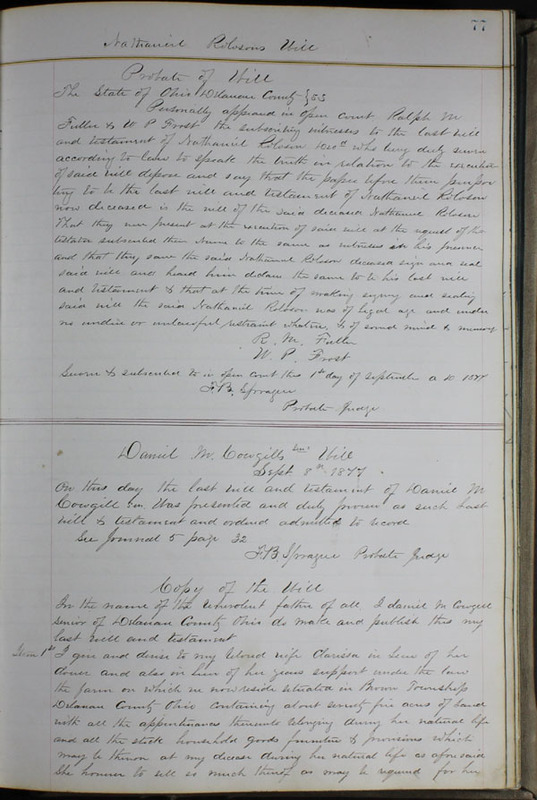 77
Nathaniel Rolosons Will
Probate of Will
The State of Ohio Delaware County } SS
Personally appeared in open Court Ralph M
Fuller & W P Frost the subscribing witnesses to the last will
and testament of Nathaniel Roloson decd who being duly sworn
according to law to speak the truth in relation to the execution
of said will depose and say that the paper before them purpor
ting to be the last will and testament of Nathaniel Roloson
now deceased is the will of the said deceased Nathaniel Roloson
That they were present at the execution of said will at the request of the
testator subscribed their Names to the same as witnesses in his presence
and that they saw the said Nathaniel Roloson deceased sign and seal
said will and heard him declare the same to be his last will
and testament & that at the time of making signing and sealing
said will the said Nathaniel Roloson was of legal age and under
no undue or unlawful restraint whatever, & of sound mind & memory
R. M. Fuller
W. P. Frost
Sworn & subscribed to in open court this 1st day of September A D 1877
F. B. Sprague
Probate Judge
Daniel M. Cowgills Senr Will
Sept 8th 1877
On this day the last will and testament of Daniel M
Cowgill Sen was presented and duly proven as such last
will & testament and ordered admitted to record
See Journal 5 page 32
F. B. Sprague Probate Judge
Copy of the Will
In the name of the benevolent father of all, I daniel M Cowgill
senior of Delaware County Ohio do make and publish this my
last will and testament
Item 1st I give and devise to my beloved wife Clarisa in lieu of her
dower and also in lieu of her years support under the law
the farm on which we now reside situated in Brown Township
Delaware County Ohio containing about seventy five acres of land
with all the appertenances thereunto belonging during her natural life
and all the stock household goods furniture & provisions which
may be thereon at my decease during her natural life as aforesaid
She however to sell so much thereof as may be required for her